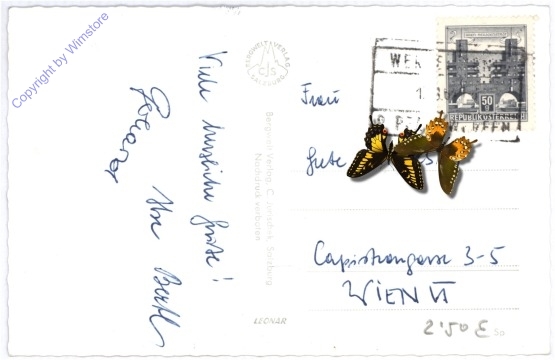 Copyright by Wimstore
Viele herzliche Grüße!
Ihre Bertl
BERGWELT VERLAG
C J S
SALZBURG
Bergwelt Verlag, C. Jurischek, Salzburg
Nachdruck verboten
LEONAR
WER
50
REPUBLIK ÖSTERREICH
Frau
Grete
Capistrangasse 3-5
WIEN VI
2'50 E